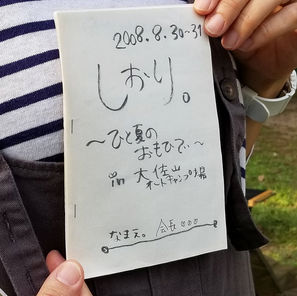 2008.8.30~31
しおり。
～ひと夏の
おもひで～
in 大佐山
オートキャンプ場
なまえ。会長○○○